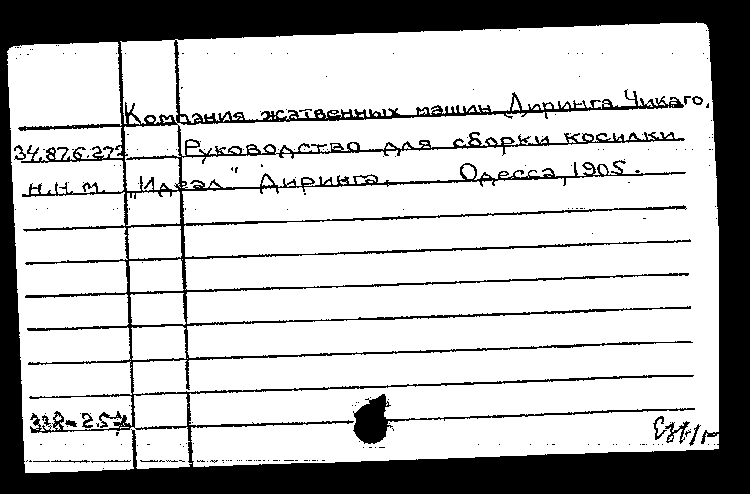 Компания жатвенных машин Диринга. Чикаго.
34.876.272 Руководство для сборки косилки
н.н.м. „Идеал" Диринга. Одесса, 1905.
338-25